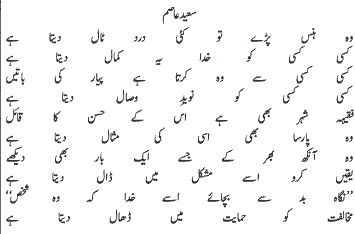 سعید عاصم
وہ ہنس پڑے تو کئی درد ٹال دیتا ہے
کسی کسی کو خدا یہ کمال دیتا ہے
کسی کسی سے وہ کرتا ہے پیار کی باتیں
کسی کسی کو نویدِ وصال دیتا ہے
فقیہہ شہر بھی ہے اس کے حسن کا قائل
وہ پارسا بھی اسی کی مثال دیتا ہے
وہ آنکھ بھر کے جسے ایک بار بھی دیکھے
یقیں کرو اسے مشکل میں ڈال دیتا ہے
”نگاہ بد سے بچائے اسے خدا کہ وہ شخص“
مخالفت کو حمایت میں ڈھال دیتا ہے